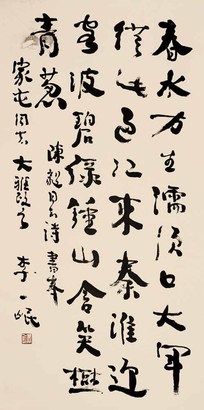 春水方生濡須口大軍
從此過江來秦淮迎
客波碧綠鍾山含笑樹
青葱
陳毅同志詩 書奉
家屯同志 大雅政之
李一氓